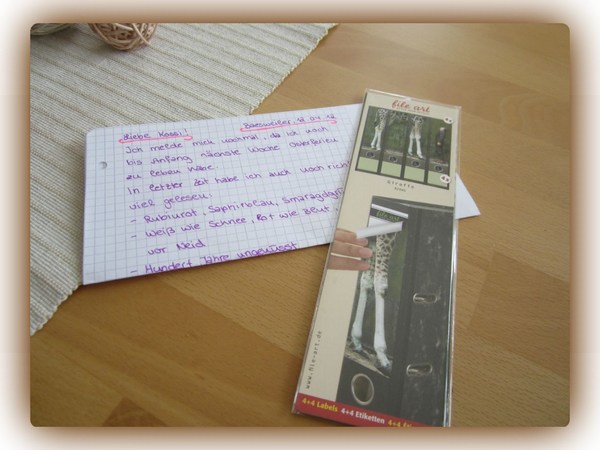 Liebe Kossi!
Baesweiler, 11.04.12
Ich melde mich nochmal, da ich noch
bis Anfang nächste Woche Osterferien
zu leben habe.
In letzter Zeit habe ich auch noch richtig
viel gelesen.
- Rubinrot, Saphirblau, Smaragdgrün
- Weiß wie Schnee, Rot wie Blut,
vor Neid
- Hundert Jahre ungeküsst
file art
Giraffe
www.dio-art.de
4+4 Labels 4+4 Etiketten 4+4